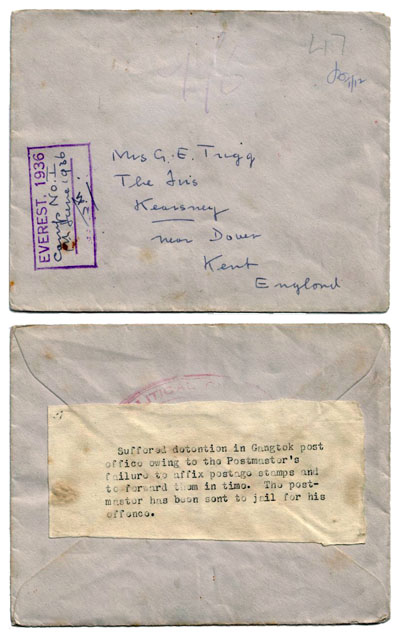 EVEREST, 1936
Camp No. I
June 1936
Mrs G. E. Trigg
The Iris
Kearsney
near Dover
Kent
England
Suffered detention in Gangtok post
office owing to the Postmaster's
failure to affix postage stamps and
to forward them in time. The post-
master has been sent to jail for his
offence.